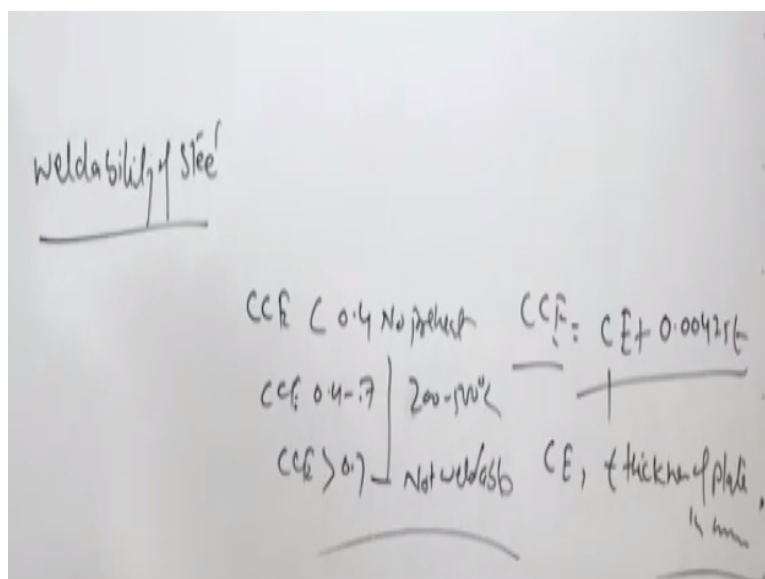 weldability of steel
CCE < 0.4 No preheat
CCE 0.4-.7 200-500°C
CCE > 0.7 Not weldable
CCE = CE + 0.00425t
CE, t thickness of plate,
in mm